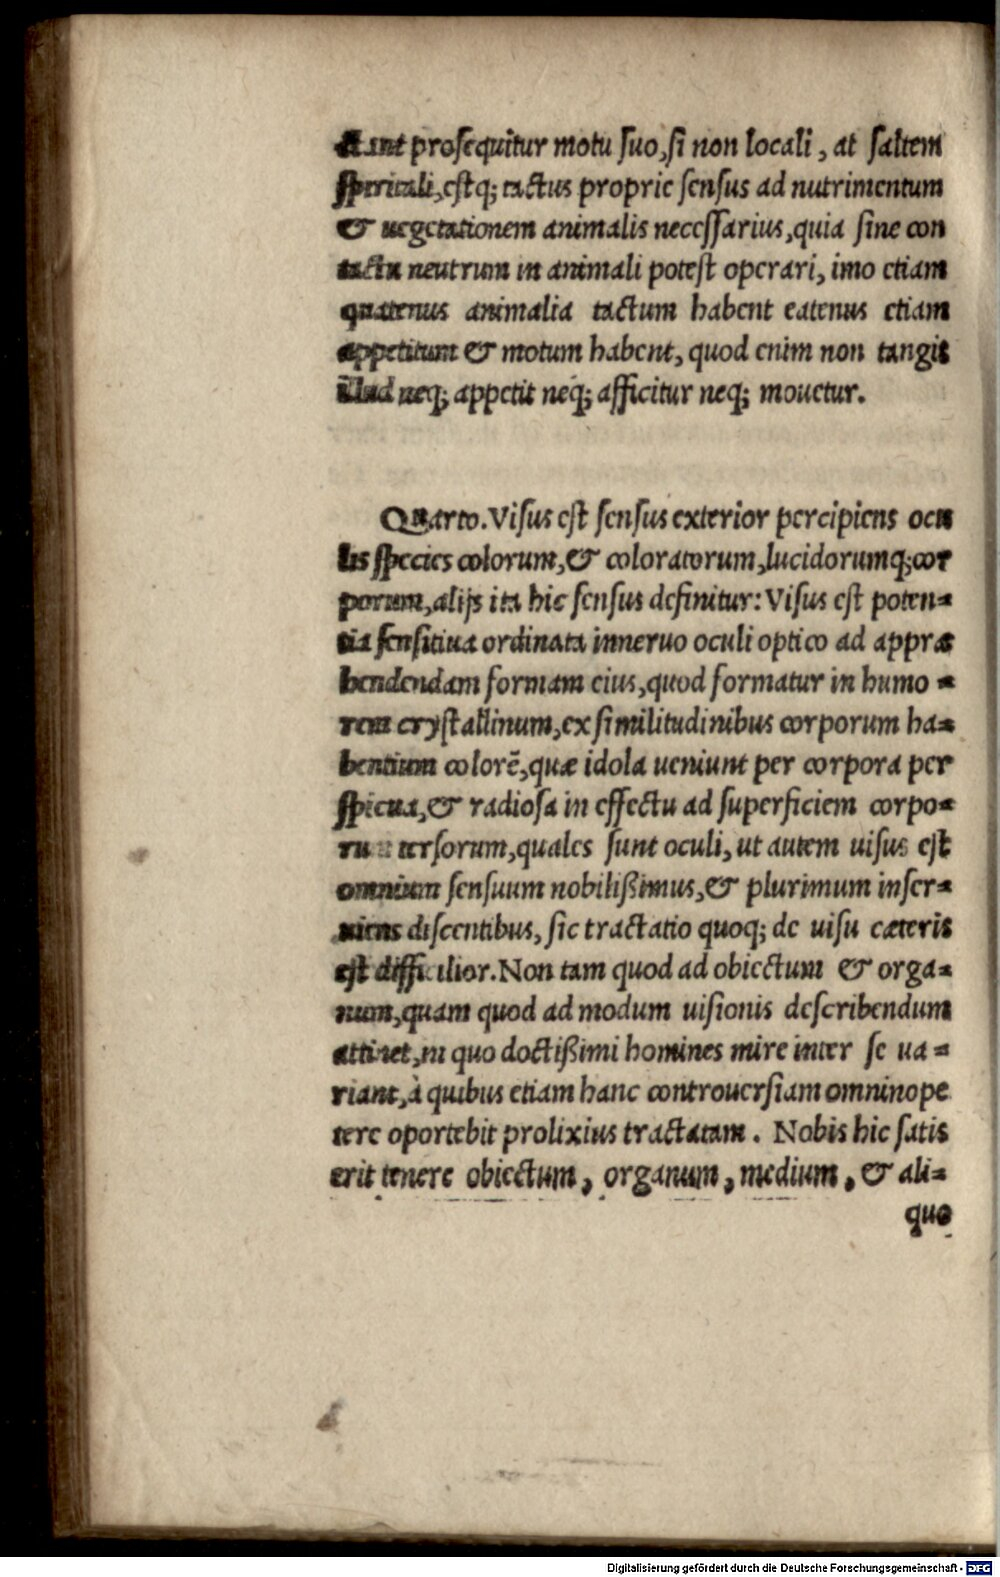 prosequitur motu suo, si non locali, at saltem
estq; tactus proprie sensus ad nutrimentum
& uegetationem animalis necessarius, quia sine con
tactu neutrum in animali potest operari, imo etiam
quatenus animalia tactum habent eatenus etiam
appetitum & motum habent, quod enim non tangit
illud neq; appetit neq́; afficitur neq; mouetur.
QVarto. Visus est sensus exterior percipiens ocu
lis species colorum, & coloratorum, lucidorumq; cor
porum, alijs ita hic sensus definitur: Visus est poten=
tia sensitiua ordinata in neruo oculi optico ad appræ
hendendam formam eius, quod formatur in humo =
rem crystallinum, ex similitudinibus corporum ha=
bentium colorẽ, quæ idola ueniunt per corpora per
spicua, & radiosa in effectu ad superficiem corpo=
ru tersorum, quales sunt oculi, ut autem uisus est
omnium sensuum nobilißimus, & plurimum inser=
uiens discentibus, sic tractatio quoq; de uisu cæteris
est difficilior. Non tam quod ad obiectum & orga=
num, quam quod ad modum uisionis describendum
attinet, in quo doctißimi homines mire inter se ua =
riant, à quibus etiam hanc controuersiam omnino pe
tere oportebit prolixius tractatam. Nobis hic satis
erit tenere obiectum, organum, medium, & ali=
quo
Digitalisierung gefördert durch die Deutsche Forschungsgemeinschaft - DFG